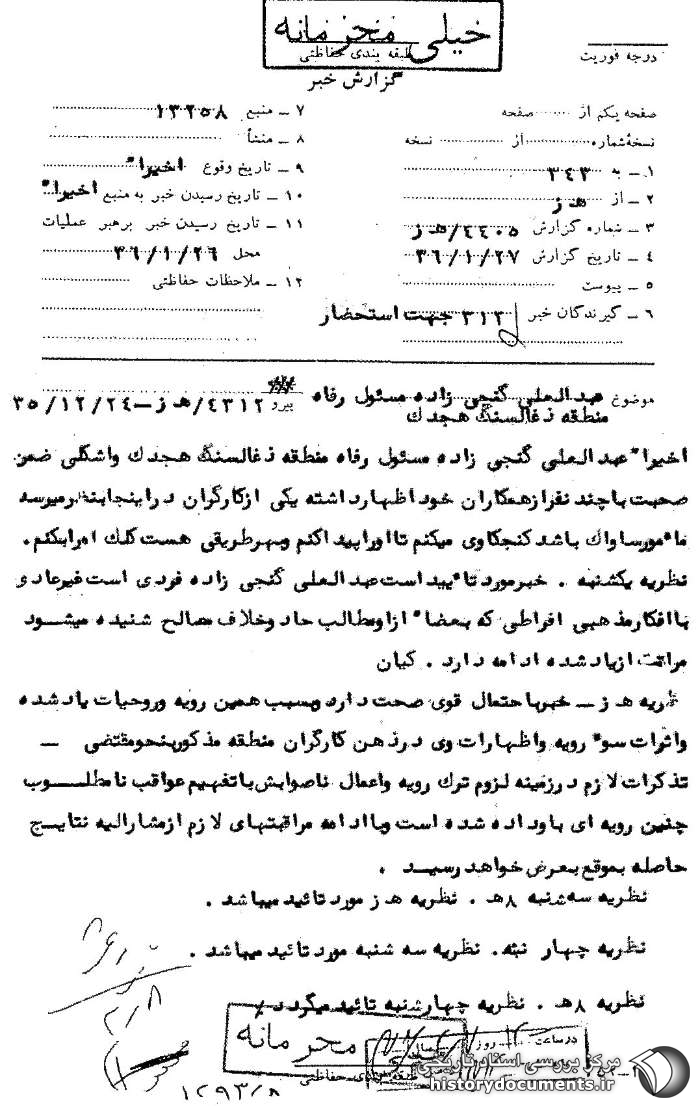 خیلی محرمانه
طبقه بندی حفاظتی
درجه فوریت
گزارش خبر
صفحه یکم از ........ صفحه
نسخه شماره ........ از ........ نسخه
۱ ـ به ۳۴۳
۲ ـ از هـ ز
۳ ـ شماره گزارش ۴۴۰۵/هـ ز
۴ ـ تاریخ گزارش ۳۶/۱/۲۷
۵ ـ پیوست
۶ ـ گیرندگان خبر ۳۱۲ جهت استحضار
۷ ـ منبع ۱۳۲۵۸
۸ ـ منشأ
۹ ـ تاریخ وقوع اخیرا"
۱۰ ـ تاریخ رسیدن خبر به منبع اخیرا"
۱۱ ـ تاریخ رسیدن خبر برهبر عملیات
محل ۳۶/۱/۲۶
۱۲ ـ ملاحظات حفاظتی
موضوع عبدالعلی گنجی زاده مسئول رفاه پیرو ۴۳۱۲/هـ ز ـ ۳۵/۱۲/۲۴
منطقه ذغالسنگ هجدک
اخیرا" عبدالعلی گنجی زاده مسئول رفاه منطقه ذغالسنگ هجدک واشگلی ضمن
صحبت باچند نفرازهمکاران خود اظهارداشته یکی ازکارگران دراینجابنظرمیرسد
مأمورساواک باشد کنجکاوی میکنم تااوراپیداکنم وبهرطریقی هست کلک اورابکنم .
نظریه یکشنبه . خبرمورد تأیید است عبدالعلی گنجی زاده فردی است غیرعادی
باافکارمذهبی افراطی که بعضا" ازاومطالب حاد وخلاف مصالح شنیده میشود
مراقبت ازیادشده ادامه دارد . کیان
نظریه هـ ز ـ خبرباحتمال قوی صحت دارد وبسبب همین رویه وروحیات یادشده
واثرات سوء رویه واظهارات وی درذهن کارگران منطقه مذکوربنحومقتضی ـ
تذکرات لازم درزمینه لزوم ترک رویه واعمال ناصوابش باتفهیم عواقب نامطلوب
چنین رویه ای باوداده شده است وباادامه مراقبتهای لازم ازمشارالیه نتایج
حاصله بموقع بعرض خواهد رسید .
نظریه سه شنبه ۸هـ . نظریه هـ ز مورد تائید میباشد .
نظریه چهار شنبه . نظریه سه شنبه مورد تائید میباشد .
نظریه ۸هـ . نظریه چهارشنبه تائید میگردد /
محرمانه
طبقه بندی حفاظتی
درساعت روز
۱۲۹۳/۸
مرکز بررسی اسناد تاریخی
historydocuments.ir